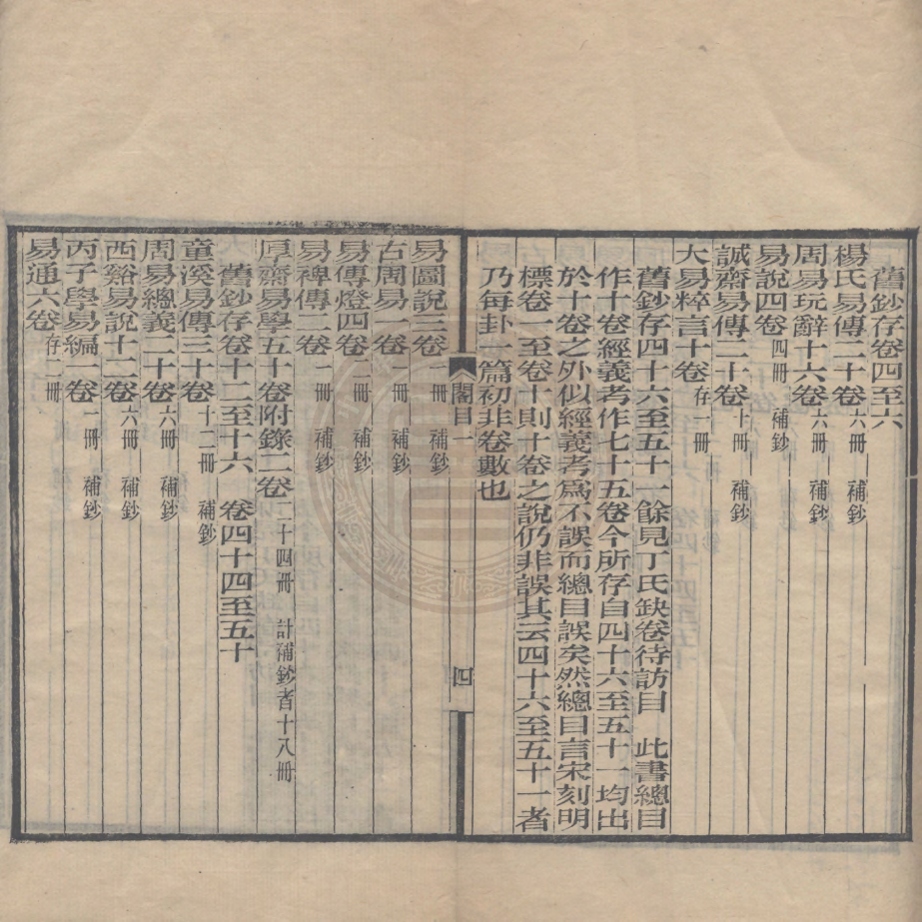 舊鈔存卷四至六
楊氏易傳二十卷 六冊 補鈔
周易玩辭十六卷 六冊 補鈔
易說四卷 四冊 補鈔
誠齋易傳二十卷 十冊 補鈔
大易粹言十卷 存一冊
舊鈔存四十六至五十一餘見丁氏缺卷待訪目 此書總目
作十卷經義考作七十五卷今所存自四十六至五十一均出
於十卷之外似經義考為不誤而總目誤矣然總目言宋刻明
標卷一至卷十則十卷之說仍非誤其云四十六至五十一者
乃每卦一篇初非卷數也
閣目一
四
易圖說三卷 一冊 補鈔
古周易一卷 一冊 補鈔
易傳燈四卷 一冊 補鈔
易裨傳二卷 一冊 補鈔
厚齋易學五十卷附錄二卷 二十四冊 計補鈔者十八冊
舊鈔存卷十二至十六 卷四十四至五十
童溪易傳三十卷 十二冊 補鈔
周易總義二十卷 六冊 補鈔
西谿易說十二卷 六冊 補鈔
丙子學易編一卷 一冊 補鈔
易通六卷 存一冊